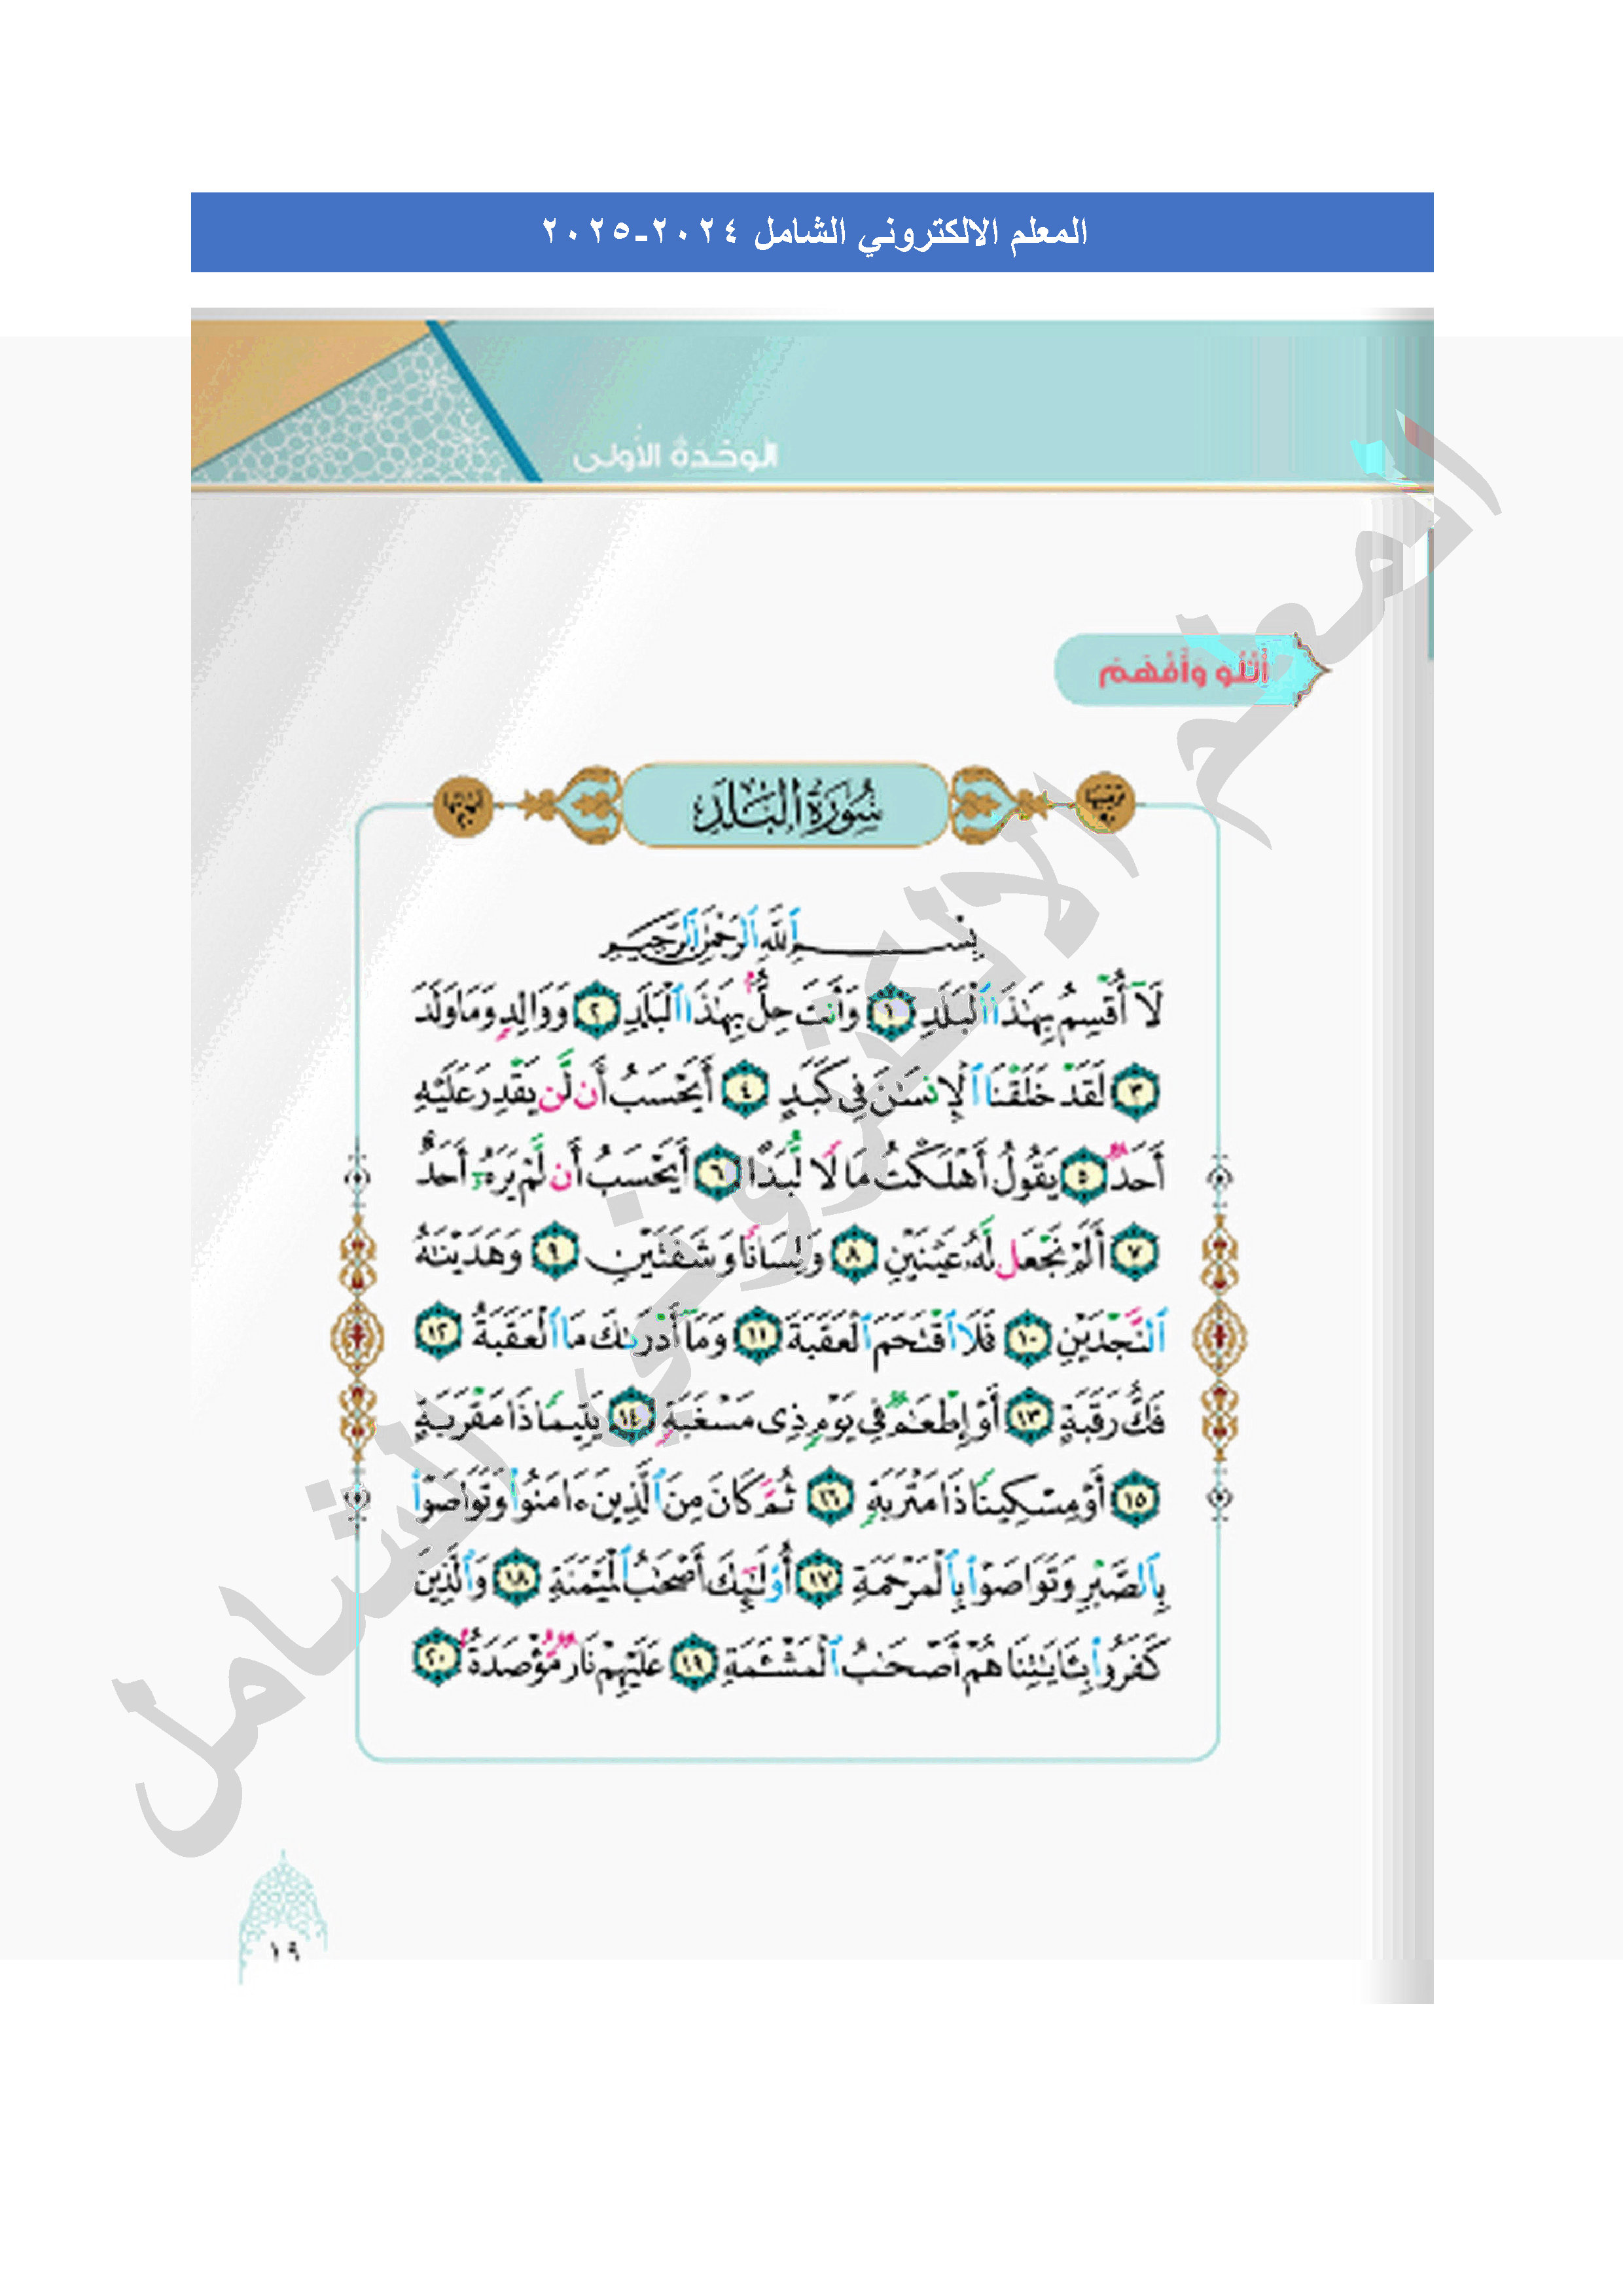 المعلم الالكتروني الشامل ٢٠٢٤-٢٠٢٥
الوحدة الأولى
أتلو وأفهم
ترتيبها ٩٠ سُورَةُ الْبَلَدِ آياتها ٢٠
بِسْمِ ٱللَّهِ ٱلرَّحْمَٰنِ ٱلرَّحِيمِ
لَآ أُقْسِمُ بِهَٰذَا ٱلْبَلَدِ ١ وَأَنتَ حِلٌّۢ بِهَٰذَا ٱلْبَلَدِ ٢ وَوَالِدٍ وَمَا وَلَدَ
٣ لَقَدْ خَلَقْنَا ٱلْإِنسَٰنَ فِى كَبَدٍ ٤ أَيَحْسَبُ أَن لَّن يَقْدِرَ عَلَيْهِ
أَحَدٌ ٥ يَقُولُ أَهْلَكْتُ مَالًا لُّبَدًا ٦ أَيَحْسَبُ أَن لَّمْ يَرَهُۥٓ أَحَدٌ
٧ أَلَمْ نَجْعَل لَّهُۥ عَيْنَيْنِ ٨ وَلِسَانًا وَشَفَتَيْنِ ٩ وَهَدَيْنَٰهُ
ٱلنَّجْدَيْنِ ١٠ فَلَا ٱقْتَحَمَ ٱلْعَقَبَةَ ١١ وَمَآ أَدْرَىٰكَ مَا ٱلْعَقَبَةُ ١٢
فَكُّ رَقَبَةٍ ١٣ أَوْ إِطْعَٰمٌ فِى يَوْمٍ ذِى مَسْغَبَةٍ ١٤ يَتِيمًا ذَا مَقْرَبَةٍ
١٥ أَوْ مِسْكِينًا ذَا مَتْرَبَةٍ ١٦ ثُمَّ كَانَ مِنَ ٱلَّذِينَ ءَامَنُوا۟ وَتَوَاصَوْا۟
بِٱلصَّبْرِ وَتَوَاصَوْا۟ بِٱلْمَرْحَمَةِ ١٧ أُو۟لَٰٓئِكَ أَصْحَٰبُ ٱلْمَيْمَنَةِ ١٨ وَٱلَّذِينَ
كَفَرُوا۟ بِـَٔايَٰتِنَا هُمْ أَصْحَٰبُ ٱلْمَشْـَٔمَةِ ١٩ عَلَيْهِمْ نَارٌ مُّؤْصَدَةٌۢ ٢٠
١٩
المعلم الالكتروني الشامل